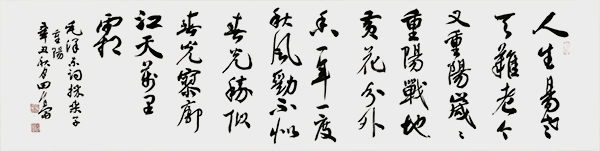 人生易老
天難老今
又重陽歲々
重陽戰地
黄花分外
香一年一度
秋風勁不似
春光勝似
春光寥廓
江天萬里
霜
毛泽东词採桑子
重陽
辛丑秋月